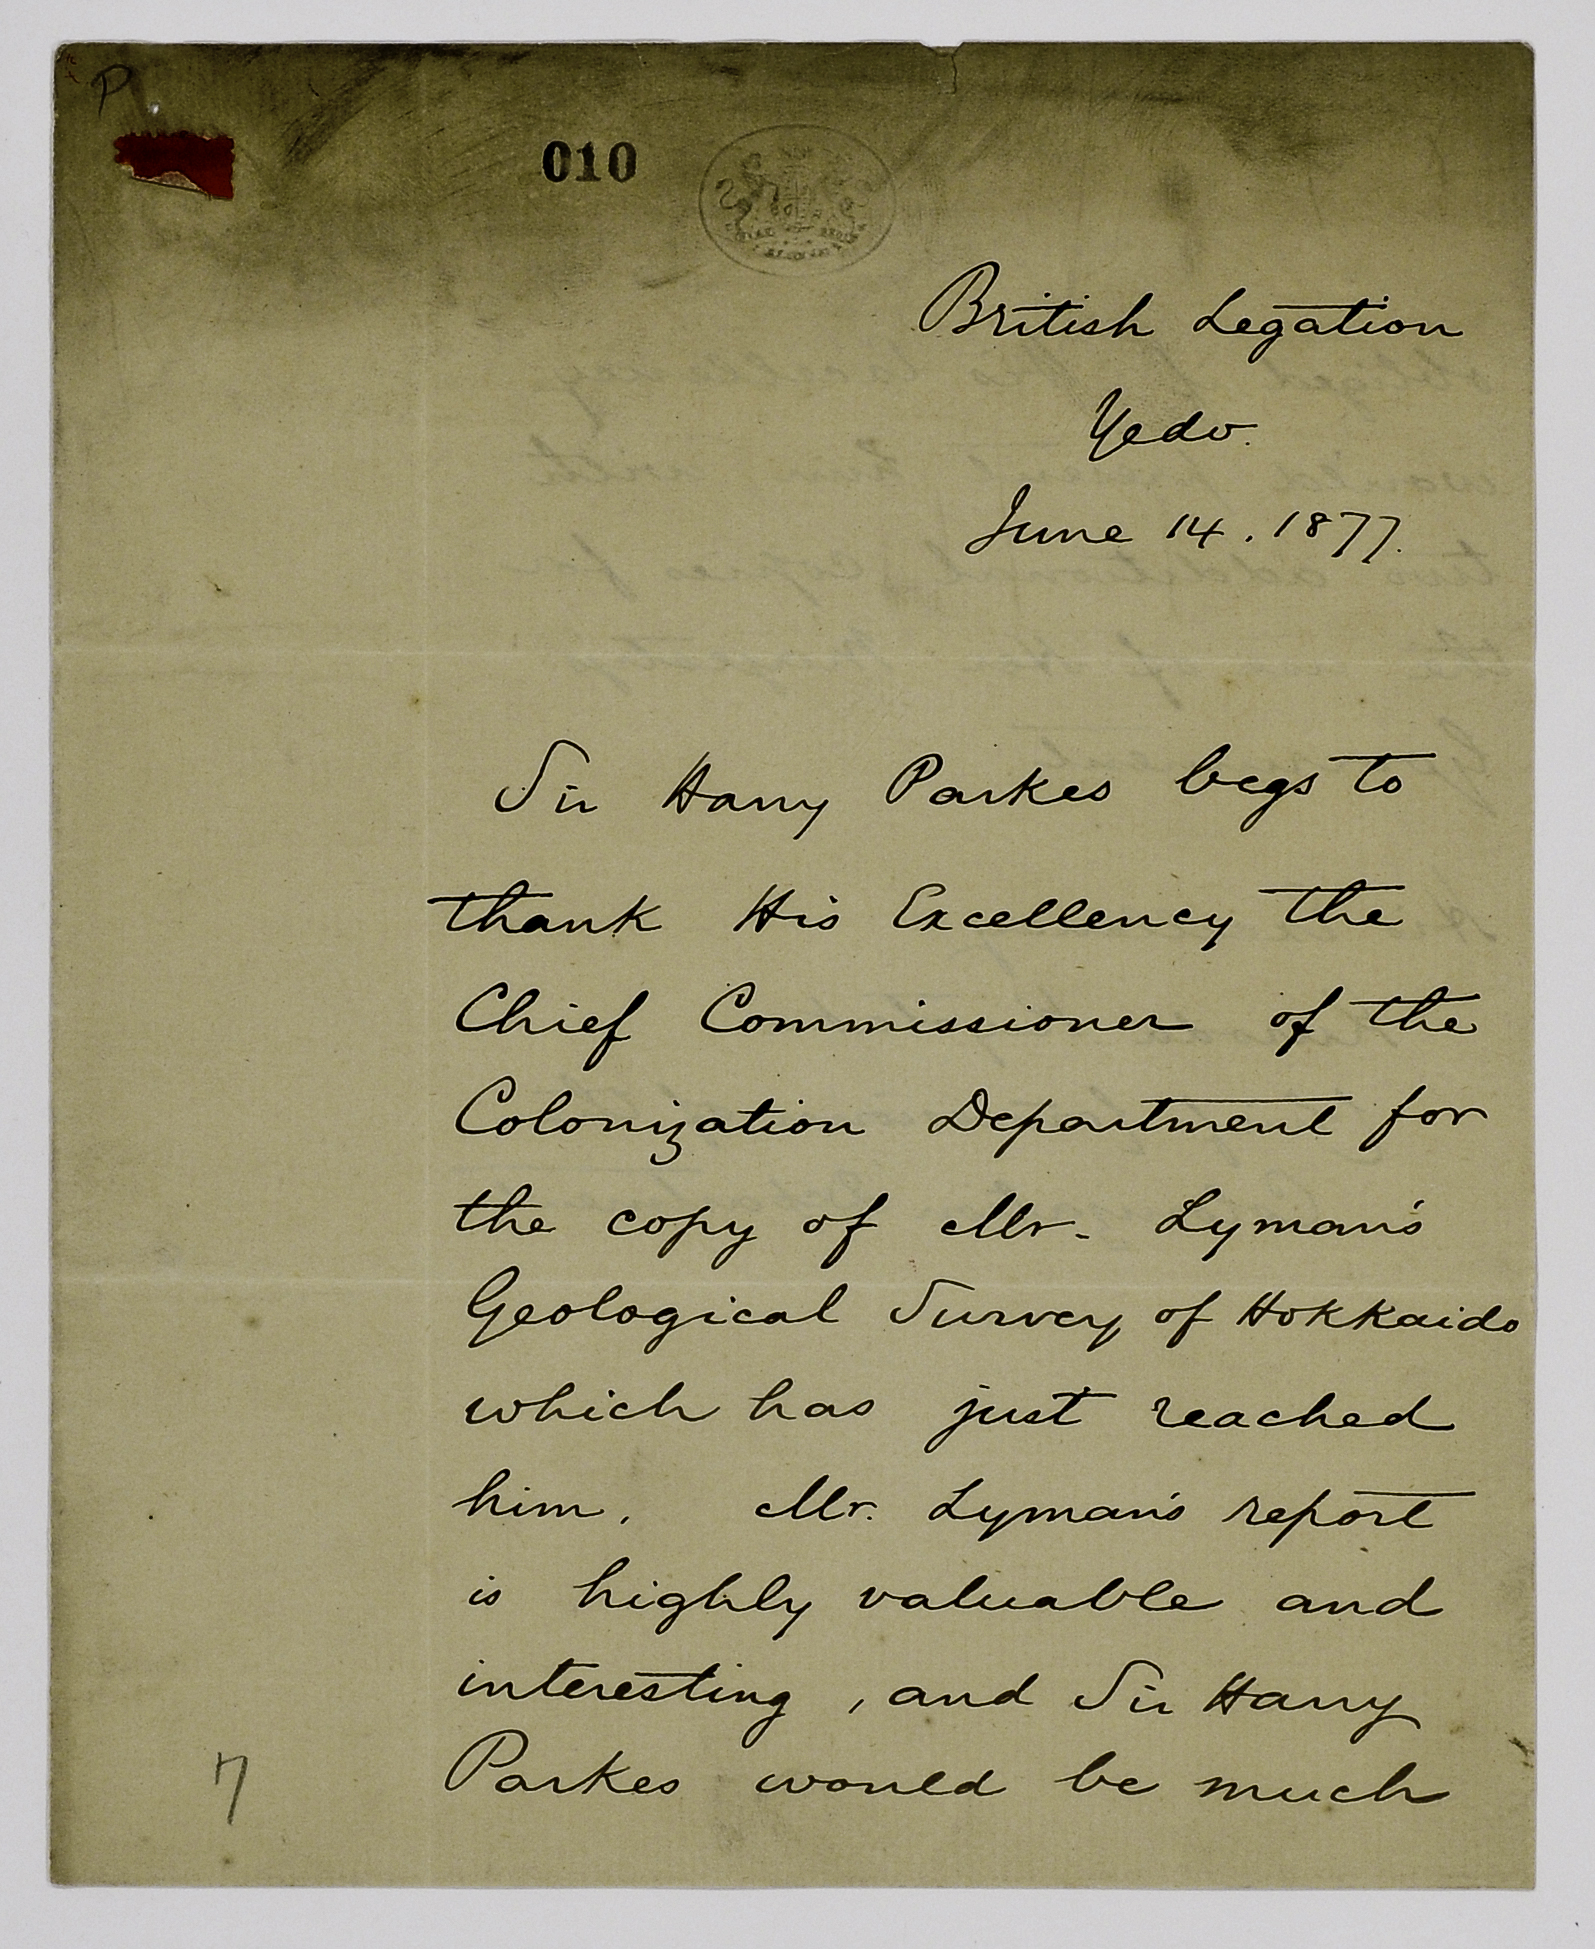 P
010
British Legation
Yedo.
June 14. 1877.
Sir Harry Parkes begs to
thank His Excellency the
Chief Commissioner of the
Colonization Department for
the copy of Mr. Lyman's
Geological Survey of Hokkaido
which has just reached
him. Mr. Lyman's report
is highly valuable and
interesting, and Sir Harry
Parkes would be much
7